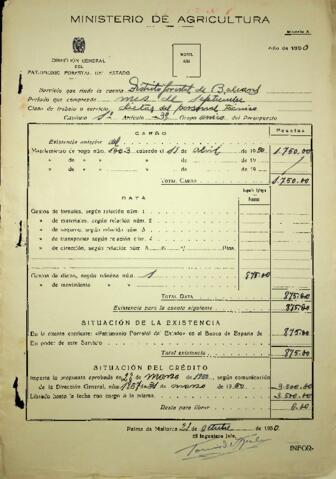 MINISTERIO DE AGRICULTURA
Modelo A
Año de 1950
DIRECCIÓN GENERAL
DEL
PATRIMONIO FORESTAL DEL ESTADO
Servicio que rinde la cuenta Distrito forestal de Baleares
Período que comprende mes de Septiembre
Clase de trabajo o servicio dietas del personal Técnico
Capítulo 1º Artículo 3º Grupo único del Presupuesto
CARGO
Pesetas
Existencia anterior
Mandamiento de pago núm. cobrado el 18 de abril de 1950 1.750.00
» de » en de de 19
» de » en de de 19
TOTAL CARGO 1.750.00
DATA
Gastos de jornales, según relación núm. 1
» de materiales, según relación núm. 2
» de seguros, según relación núm. 3
» de transportes según relación núm. 4
» de dirección, según relación núm. 5 Ptas.
Gastos de dietas, según relación núm. 1 875.00
» de movimiento »
TOTAL DATA 875.00
Existencia para la cuenta siguiente 875.00
SITUACIÓN DE LA EXISTENCIA
En la cuenta corriente «Patrimonio Forestal del Estado» en el Banco de España de 875.00
En poder de este Servicio
Total existencia 875.00
SITUACIÓN DEL CRÉDITO
Importa la propuesta aprobada en 28 de marzo de 1950, según comunicación
de la Dirección General, núm. 1807 de 31 de marzo de 1950 3.500.00
Librado hasta la fecha con cargo a la misma 3.500.00
Resta para librar 0.00
Palma de Mallorca 21 de octubre de 1950.
El Ingeniero Jefe,